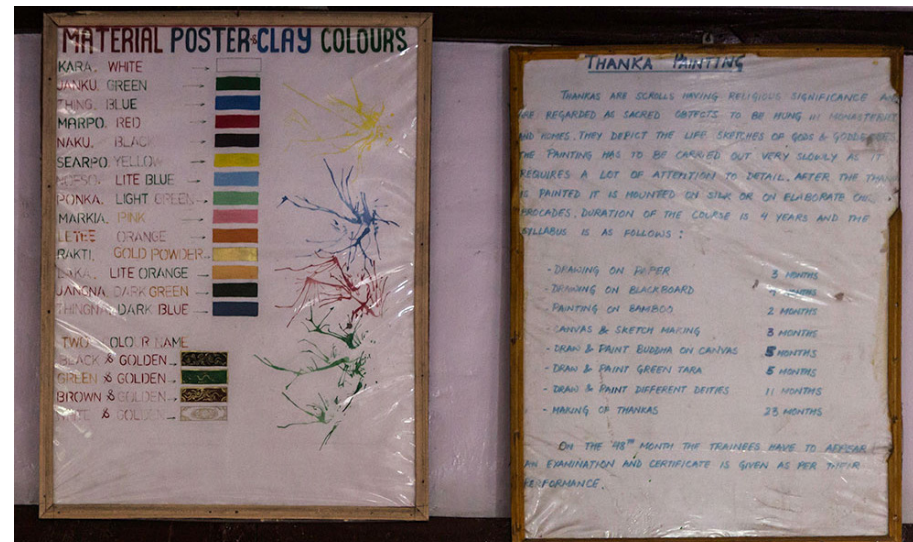 MATERIAL POSTER & CLAY COLOURS
KARA. WHITE
JANKU. GREEN
THING. BLUE
MARPO. RED
NAKU. BLACK
SEARPO. YELLOW
LITE BLUE
PONKA. LIGHT GREEN
MARKIA PINK
LETEE ORANGE
RAKTI. GOLD POWDER
LAKA. LITE ORANGE
JANGNA. DARK GREEN
THINGNA. DARK BLUE
TWO COLOUR NAME
BLACK & GOLDEN
GREEN & GOLDEN
BROWN & GOLDEN
WHITE & GOLDEN
THANKA PAINTING
THANKAS ARE SCROLLS HAVING RELIGIOUS SIGNIFICANCE AND
ARE REGARDED AS SACRED OBJECTS TO BE HUNG IN MONASTERIES
AND HOMES. THEY DEPICT THE LIFE SKETCHES OF GODS & GODDESSES.
THE PAINTING HAS TO BE CARRIED OUT VERY SLOWLY AS IT
REQUIRES A LOT OF ATTENTION TO DETAIL. AFTER THE
IS PAINTED IT IS MOUNTED ON SILK OR ON ELABORATE
BROCADES. DURATION OF THE COURSE IS 4 YEARS AND THE
SYLLABUS IS AS FOLLOWS :
- DRAWING ON PAPER 3 MONTHS
- DRAWING ON BLACKBOARD MONTHS
- PAINTING ON BAMBOO 2 MONTHS
- CANVAS & SKETCH MAKING 3 MONTHS
- DRAW & PAINT BUDDHA ON CANVAS 5 MONTHS
- DRAW & PAINT GREEN TARA 5 MONTHS
- DRAW & PAINT DIFFERENT DEITIES 11 MONTHS
- MAKING OF THANKAS 23 MONTHS
ON THE 48TH MONTH THE TRAINEES HAVE TO APPEAR
AN EXAMINATION AND CERTIFICATE IS GIVEN AS PER THEIR
PERFORMANCE.